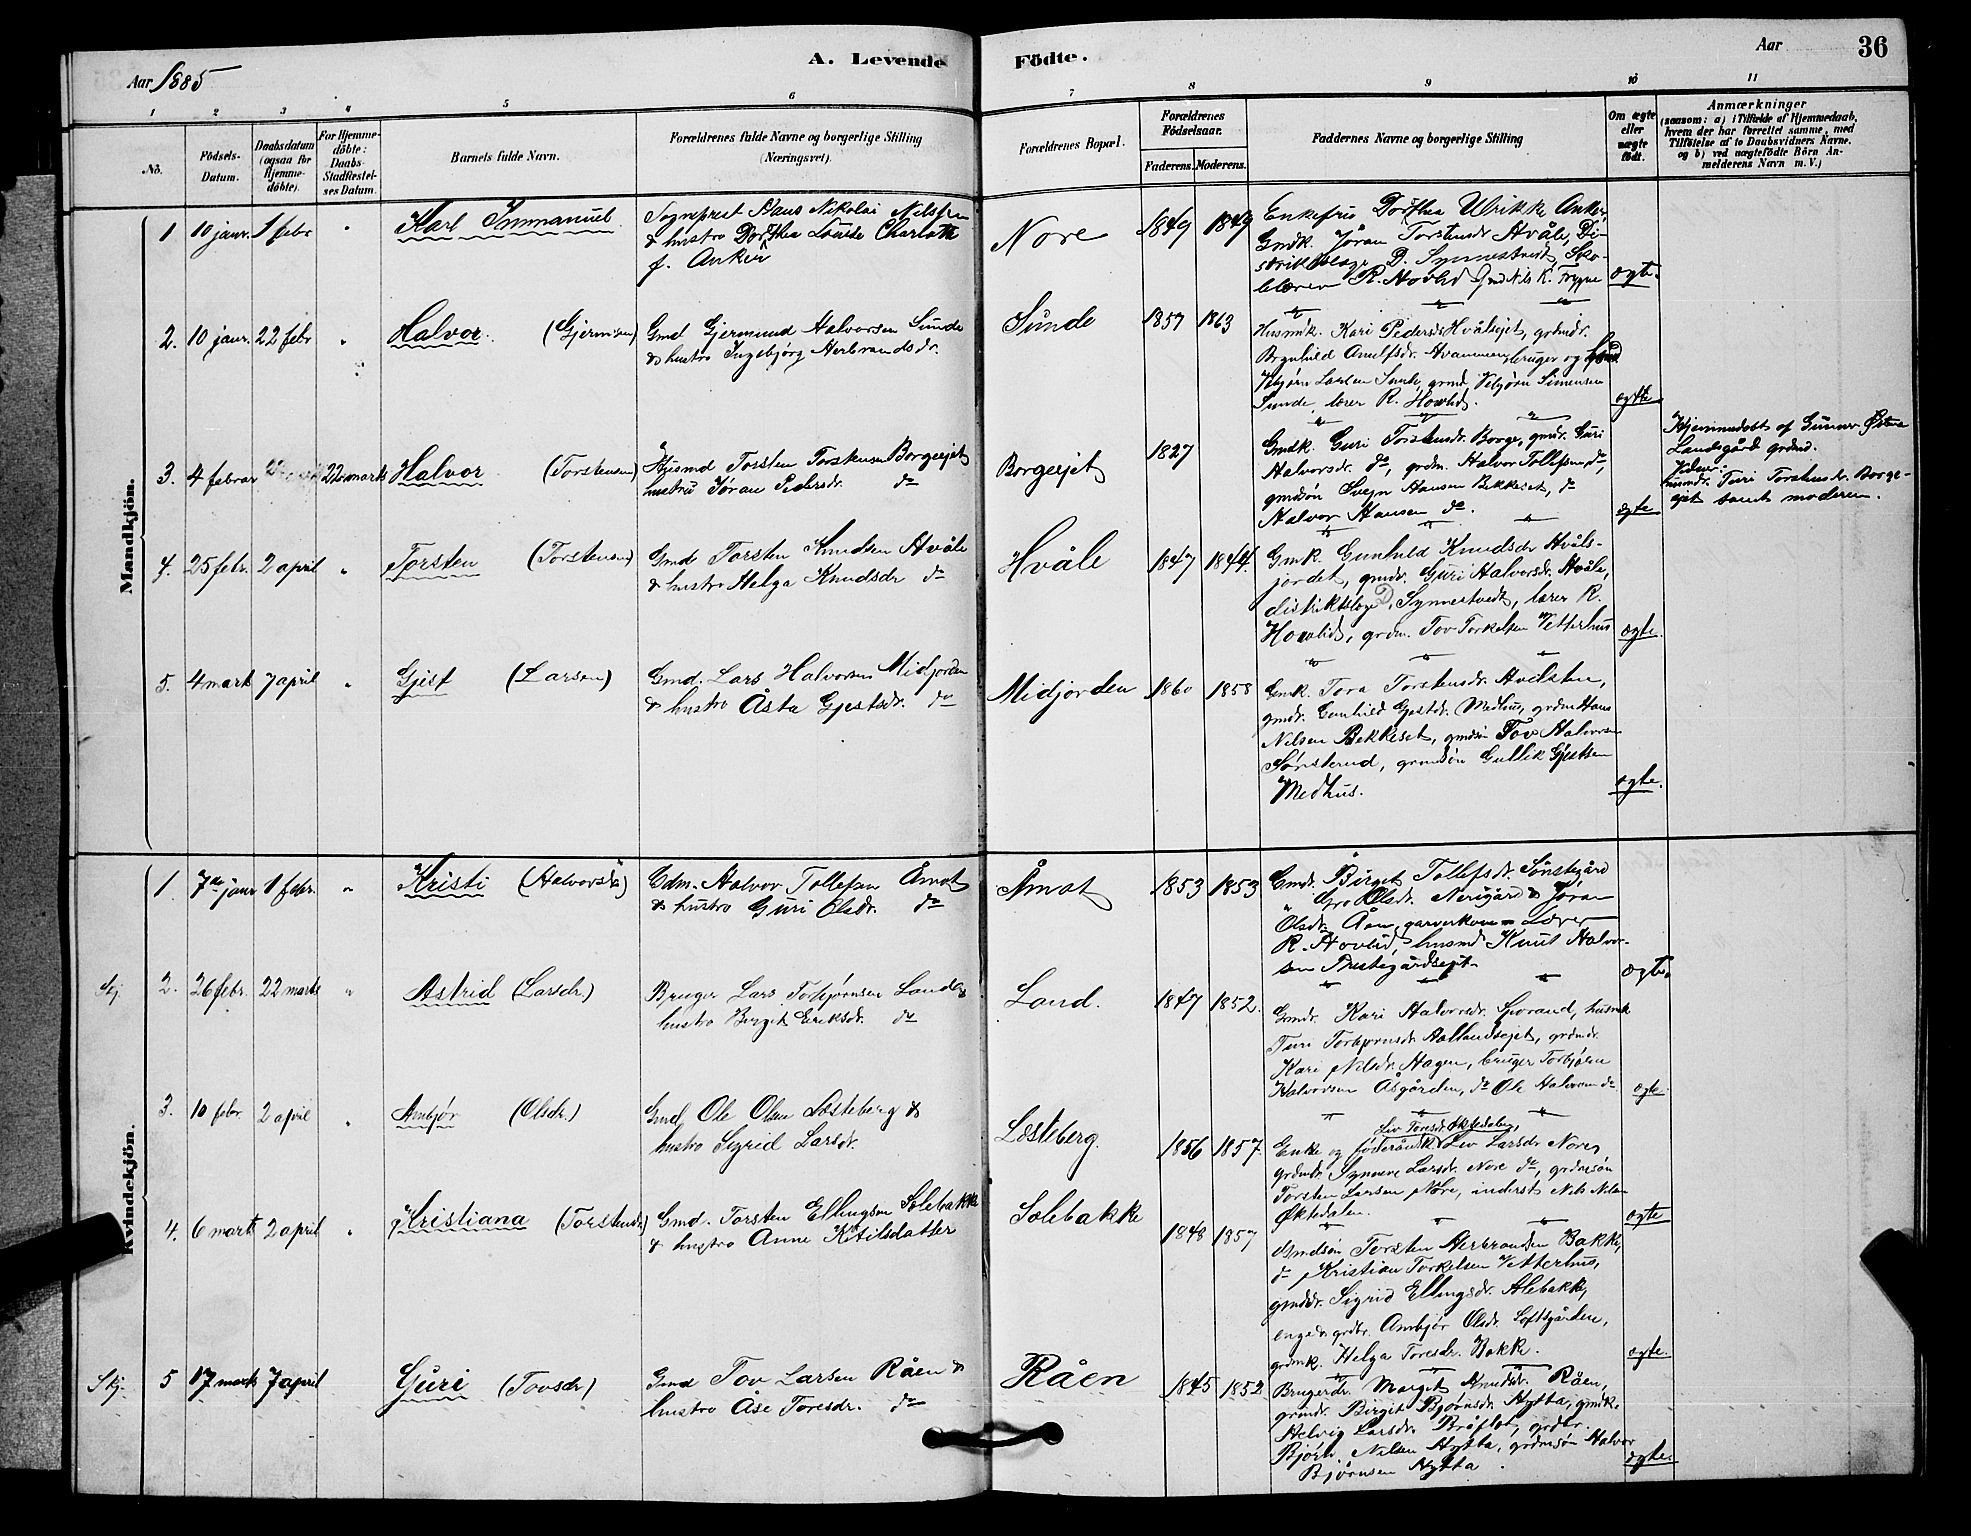 A. Levende
Födte.
Aar 1885
Aar
36
1
2
3
4
5
6
7
8
9
10
11
No.
Födsels-
Datum.
Daabsdatum
(ogsaa for
Hjemme-
döbte).
For Hjemme-
döbte:
Daabs-
Stadfæstel-
ses Datum.
Barnets fulde Navn.
Forældrenes fulde Navne og borgerlige Stilling
(Næringsvei).
Forældrenes Bopæl.
Forældrenes
Födselsaar.
Faderens.
Moderens.
Faddernes Navne og borgerlige Stilling
Om ægte
eller
uægte
födt.
Anmærkninger
(saasom: a) i Tilfælde af Hjemmedaab,
hvem der har forrettet samme, med
Tilföielse af to Daabsvidners Navne,
og b) ved uægtefödte Börn An-
melderens Navn m. V.)
Mandkjön.
1 10 janr. 1 febr " Karl Immanuel
Sogneprest Hans Nikolai Nilssen
& hustro Dorthea Louise Charlotte
f. Anker
Nore
1849 1849
Enkefru Dorthea Ulrikke Anker,
Gmdk. Jöran Torstensdr Hvåle, Di-
striktslæge D. Synnestvedt, Sko-
lelærer R. Hovlid Gmd Nils K. Frygne
ægte.
2. 10 janr. 22 febr " Halvor (Gjermunsen)
Gmd Gjermund Halvorsen Sunde
& hustro Ingebjørg Herbrandsdr.
Sunde
1857 1863
Husmk. Kari Pedersdr Hvålsejet, grdmdr.
Brynhild Arnulfsdr. Hvammen, bruger og
Vebjørn Larsen Sunde, grmd Vebjørn Simensen
Sunde, lærer R. Hovlid.
ægte
3. 4 februar 22 mark Halvor (Torstensen)
Husmd Torsten Torstensen Borgeejet
hustru Jøran Pedersdr. do
Borgeejet
1827
Gmdk. Guri Torstensdr. Borge, gmdr. Guri
Halvorsdr. do, grdm. Halvor Tollefsen do,
gmdsön Svejn Hansen Bekkeset, do
Halvor Hansen do.
ægte
Hjemmedøbt af Gunnar Østen
Landsgård grdmd.
Vidner:
husmdr. Turi Torstensdr. Borge-
ejet samt moderen.
4. 25 febr. 2 april " Torsten (Torstensen)
Gmd Torsten Knudsen Hvåle
& hustro Helga Knudsdr do
Hvåle
1847 1844.
Gmk. Gunhild Knudsdr Hvåls-
jordet, gmdr. Guri Halvorsdr. Hvåle,
distriktslæge D. Synnestvedt, lærer R.
Hovlid, grdm. Tov Torkelsen Vetterhus
ægte
5. 4 mark 7 april " Gjest (Larsen)
Gmd. Lars Halvorsen Midjorden
& hustro Åsta Gjestsdr. do
Midjorden
1860 1858
Gmk. Tora Torstensdr. Hvelsten,
gmdr. Gunhild Gjestdr. Medhus, grdm Hans
Nilsen Bekkeset, gmdsön Tov Halvorsen
Sönsterud, grmdsön Gullik Gjestsen
Medhus.
ægte.
Kvindekjön.
1. 7de janr 1 febr. " Kristi (Halvorsdr)
Gdm. Halvor Tollefsen Åmot
& hustro Guri Olsdr. do
Åmot
1853 1853
Gmdr. Birget Tollefsdr. Sönstegård
" Gro Olsdr. Nerigård & Jöran
Olsdr. Åen, garverkone – Lærer
R. Hovlid, husmd Knut Halvor-
sen Prestegårdsejet
ægte.
Skj. 2. 26 febr. 22 marts " Astrid (Larsdr.)
Bruger Lars Torbjørnsen Land &
hustro Birget Eriksdr. do
Land.
1847 1852.
Gmdr. Kari Halvorsdr. Sporand, husmk
Turi Torbjørnsdr Aallandsejet, grdmdr.
Kari Nilsdr. Hagen, bruger Torbjörn
Halvorsen Åsgården, do Ole Halvorsen do
ægte.
3. 10 febr 2 april " Ambjør (Olsdr.)
Gmd Ole Olsen Læsteberg &
hustro Sigrid Larsdr.
Læsteberg.
1856 1857.
Liv Toresdr. Øktedalen,
Enke og föderådsk. Liv Larsdr Nore,
grdmdr. Synneve Larsdr. Nore do, grdmsön
Torsten Larsen Nore, inderst Nils Nilsen
Øktedalen.
ægte
4. 6 mart 2 april " Kristiana (Torstensdr)
Gmd. Torsten Ellingsen Solebakke
& hustro Anne Kitilsdatter
Solebakke
1848 1857
Gmdsön Torsten Herbrandsen Bakke,
do Kristian Torkelsen Vetterhus,
gmdsdr. Sigrid Ellingsdr. Solebakke,
grdbr. Ambjör Olsdr. Loftsgården,
grdmk. Helga Toresdr. Bakk.
ægte.
Skj. 5 17 mark 7 april Guri (Tovsdr)
Gmd Tov Larsen Råen &
hustro Åse Toresdr. do
Råen
1845 1852.
Brugerdr. Marget Knudsdr. Råen,
grmdr. Birgit Bjørnsdr. Hytta, gmdk.
Helvig Larsdr. Bråflåt, grdbr.
Bjørn Nilsen Hytta, grdmsön Halvor
Bjørnsen Hytta.
ægte.